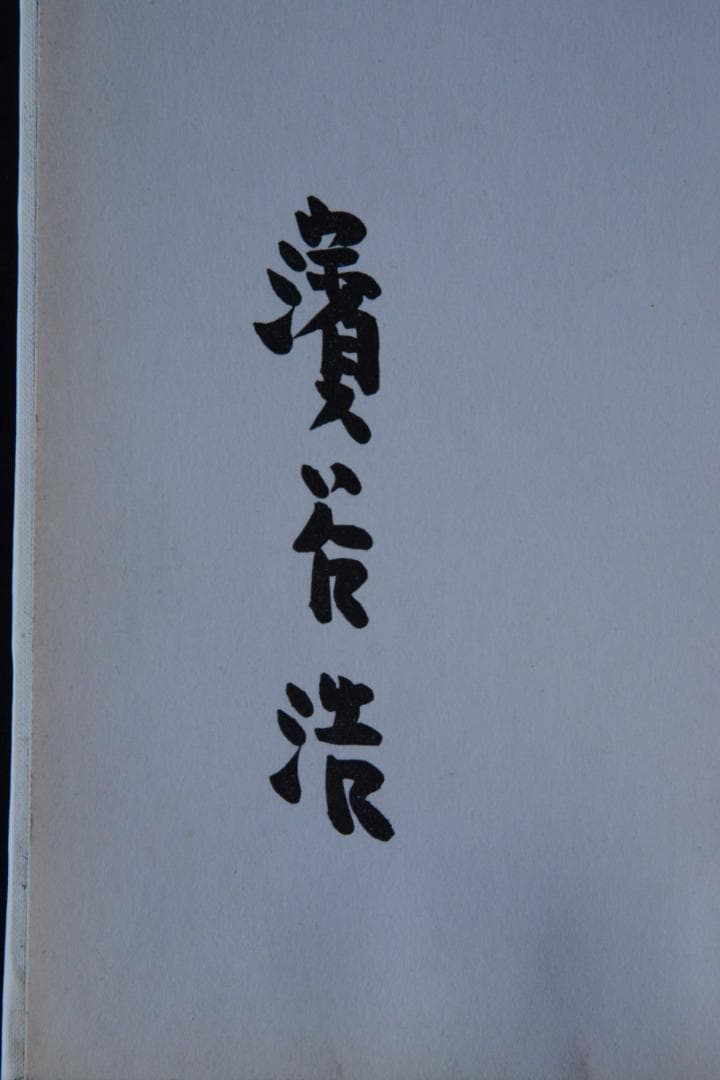 濱谷浩